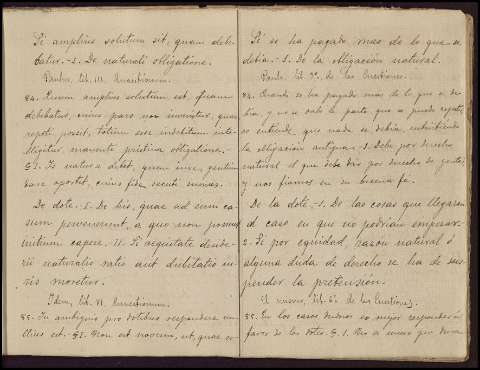 Si amplius solutum sit, quam debe-
batur. - 2. De naturali obligatione.
Paulus, lib. III. Quaestionum.
84. Quum amplius solutum est, quam
debebatur, cuius pars non invenitur, quae
repeti possit, totum esse indebitum inte-
lligitur, manente pristina obligatione. -
§ 1. Is natura debet, quem iure gentium
dare oportet, cuius fidem secuti sumus.
De dote. - 1. De his, quae ad eum ca-
sum pervenerunt, a quo non possunt
initium capere. 2. Si aequitate deside-
rii naturalis ratio aut dubitatio iu-
ris moretur.
Idem, lib. VI. Quaestionum.
85. In ambiguis pro dotibus respondere me-
lius est. - § 1. Non est novum, ut, quae se-
Si se ha pagado mas de lo que se
debia. - 2. De la obligación natural.
Paulo, lib. 3º. de las Cuestiones.
84. Cuando se ha pagado mas de lo que se de-
bia, y no se halla la parte que se puede repetir,
se entiende que nada se debia, subsistiendo
la obligación antigua. - 1. Debe por derecho
natural el que debe dar por derecho de gentes,
y nos fiamos en su buena fé.
De la dote. - 1. De las cosas que llegaron
al caso en que no podrían empezar. -
2. Si por equidad, razón natural ó
alguna duda de derecho se ha de sus-
pender la pretensión.
El mismo, lib. 6º. de las Cuestiones.
85. En los casos dudosos es mejor responder á
favor de las dotes. § 1. No es nuevo que duren